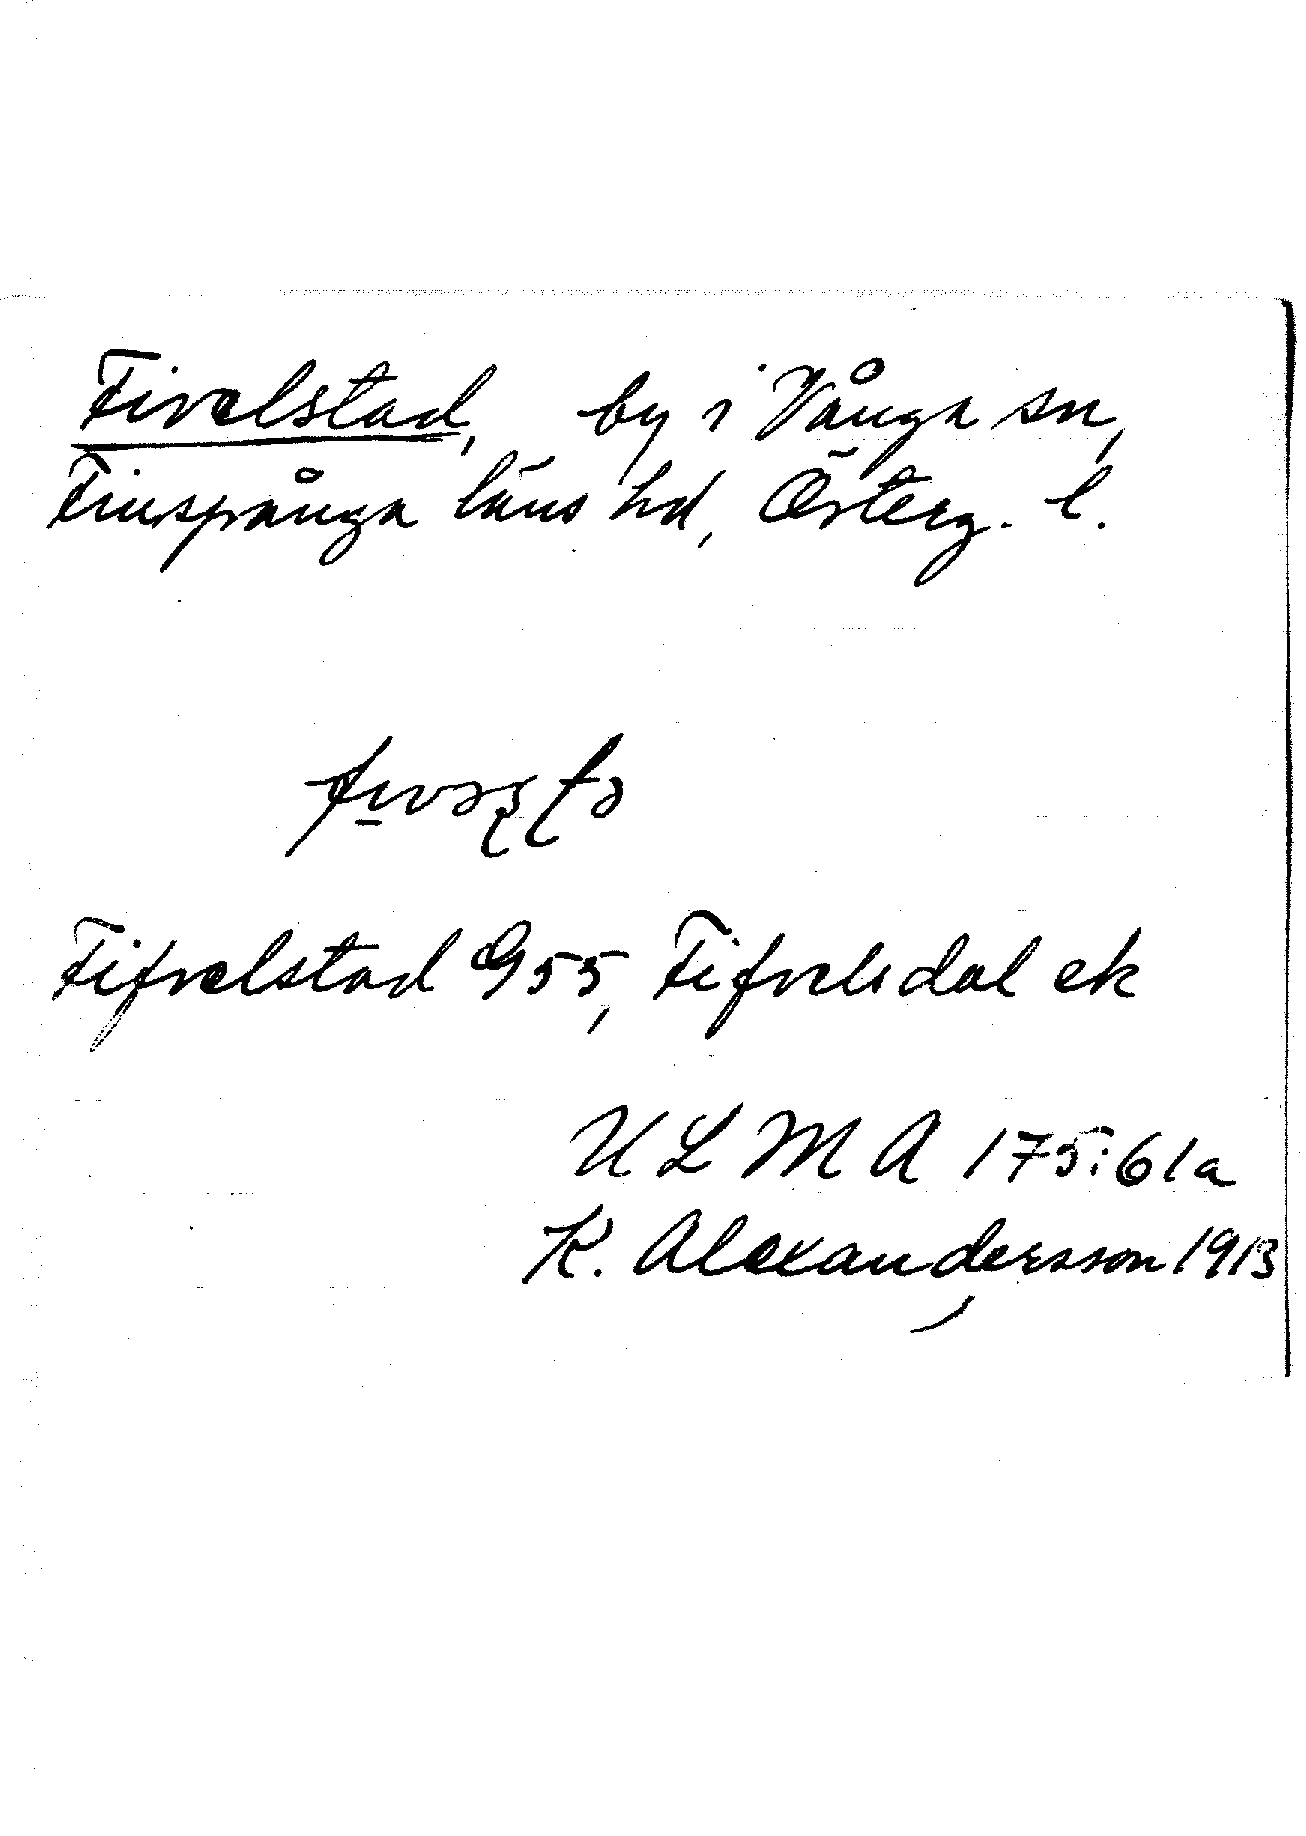 Fivelstad, by i Vånga sn,
Finspånga läns hd, Österg. l.
Fifvelstad G55, Fifvelsdal ek
ULMA 175:61a
K. Alexandersson 1913